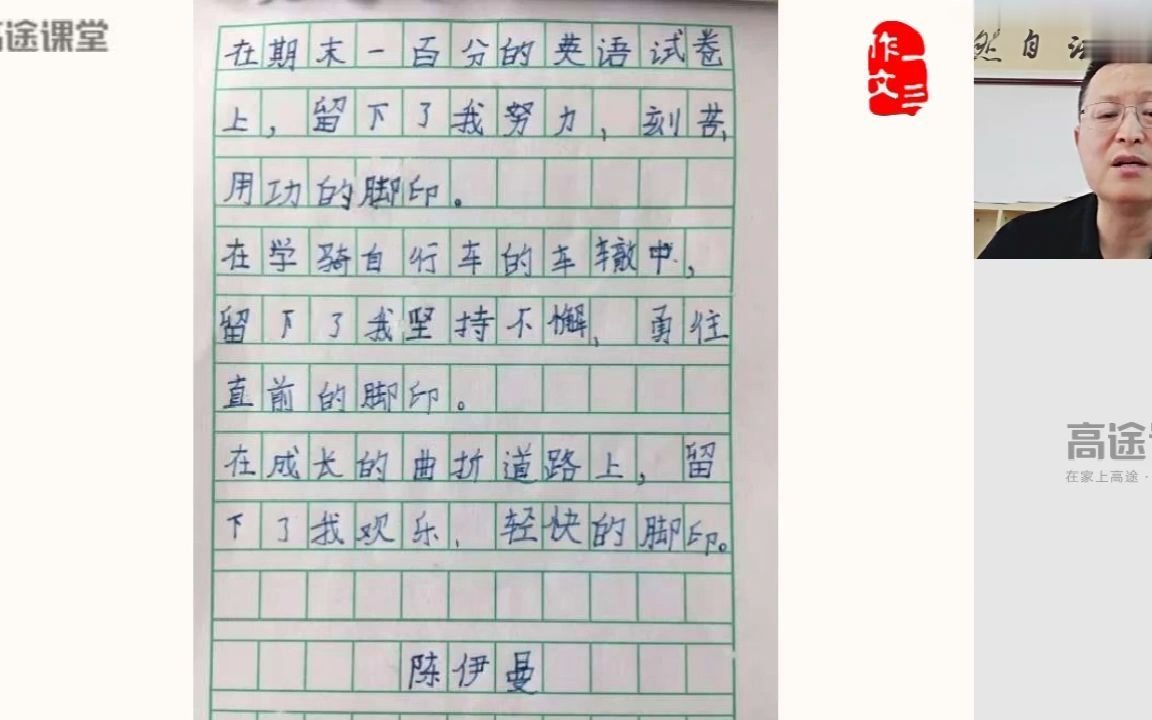 高途课堂
在期末一百分的英语试卷
上，留下了我努力，刻苦，
用功的脚印。
在学骑自行车的车辙中，
留下了我坚持不懈、勇往
直前的脚印。
在成长的曲折道路上，留
下了我欢乐、轻快的脚印。
陈伊曼
作文一三
然自法
高途
在家上高途·